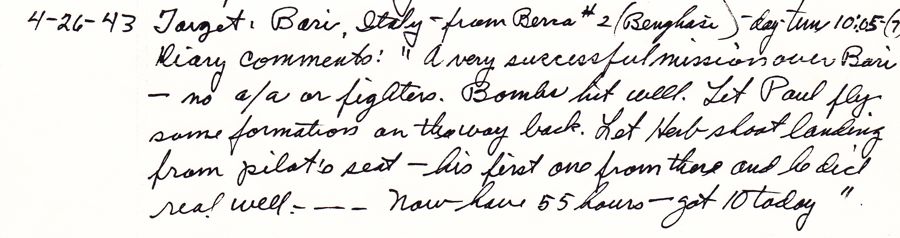 4-26-43 Target: Bari, Italy - from Berca #2 (Benghasi) - day - time 10:05 (7
Diary comments: "A very successful mission over Bari
— no a/a or fighters. Bombs hit well. Let Paul fly
some formation on the way back. Let Herb shoot landing
from pilot's seat — his first one from there and he did
real well. — — — Now have 55 hours — got 10 today".